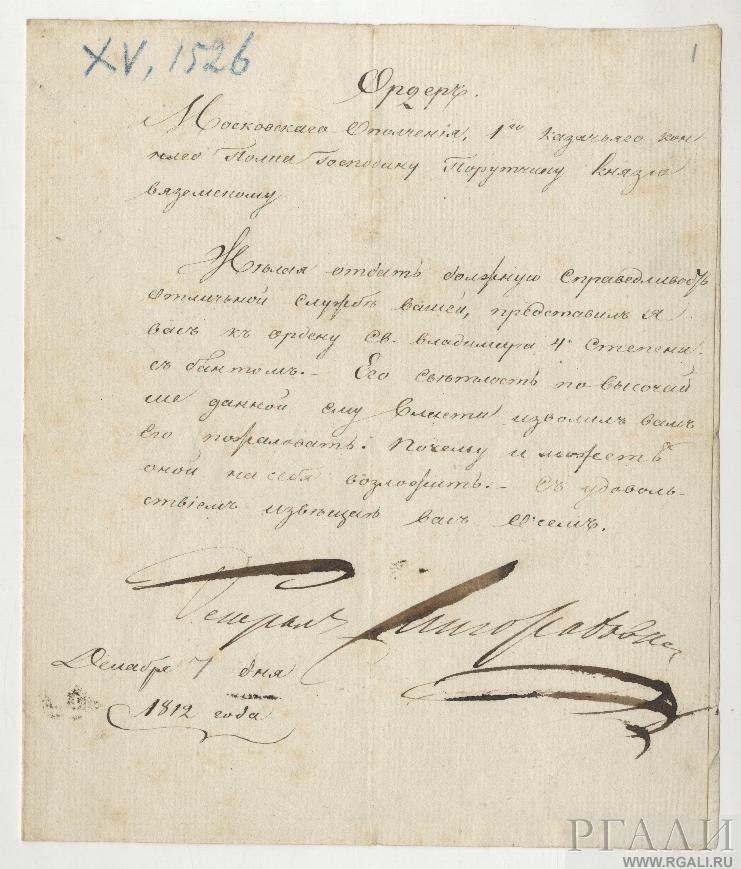 XV, 1526
1
Ордеръ.
Московскаго Ополченія, 1го казачьяго кон
наго Полка Господину Порутчику Князю
Вяземскому
Желая отдать должную справедливость
отличьной службе вашей, представилъ я
васъ къ ордену св. Владимира 4й степени
съ бантомъ. – Его светлость по высочай
ше данной ему власти изволилъ вамъ
его пожаловать: Почему и можете
оной на себя возложить. – Съ удоволь-
ствіемъ извещаю васъ о семъ.
Генералъ
Декабря 7 дня
1812 года
РГАЛИ
WWW.RGALI.RU